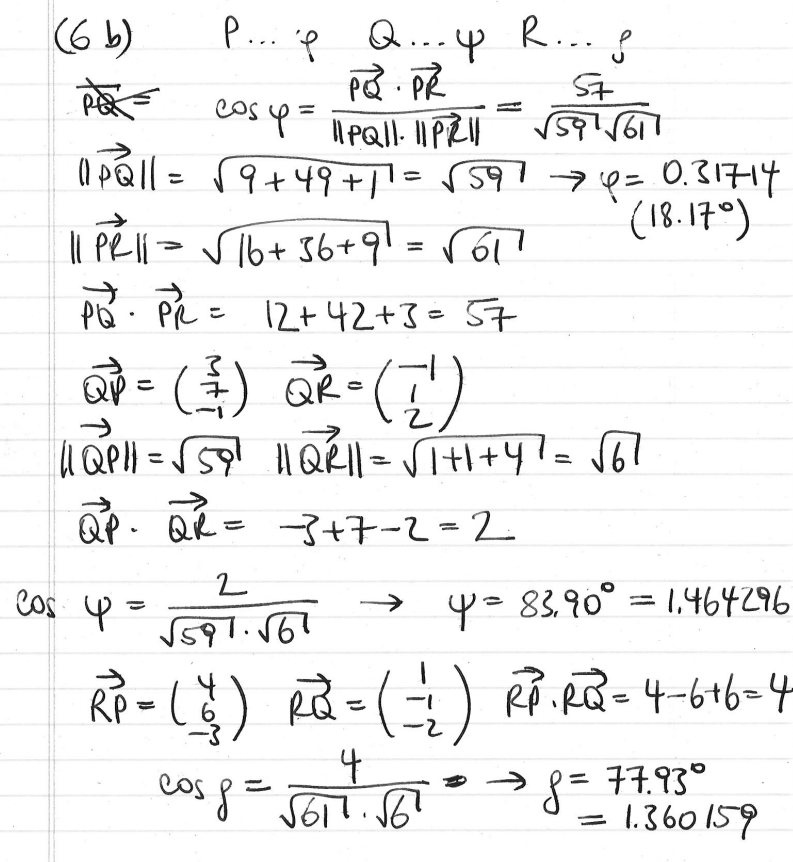 (6 b) P... φ Q... ψ R... ρ
cos φ = (PQ⃗ · PR⃗) / (||PQ|| · ||PR⃗||) = 57 / (√59 √61)
||PQ⃗|| = √(9+49+1) = √59 → φ = 0.31714
(18.17°)
||PR⃗|| = √(16+36+9) = √61
PQ⃗ · PR⃗ = 12+42+3 = 57
QP⃗ = (3 7 -1) QR⃗ = (-1 1 2)
||QP⃗|| = √59 ||QR⃗|| = √(1+1+4) = √6
QP⃗ · QR⃗ = -3+7-2 = 2
cos ψ = 2 / (√59 · √6) → ψ = 83.90° = 1.464296
RP⃗ = (4 6 -3) RQ⃗ = (1 -1 -2) RP⃗ · RQ⃗ = 4-6+6 = 4
cos ρ = 4 / (√61 · √6) → ρ = 77.93°
= 1.360159